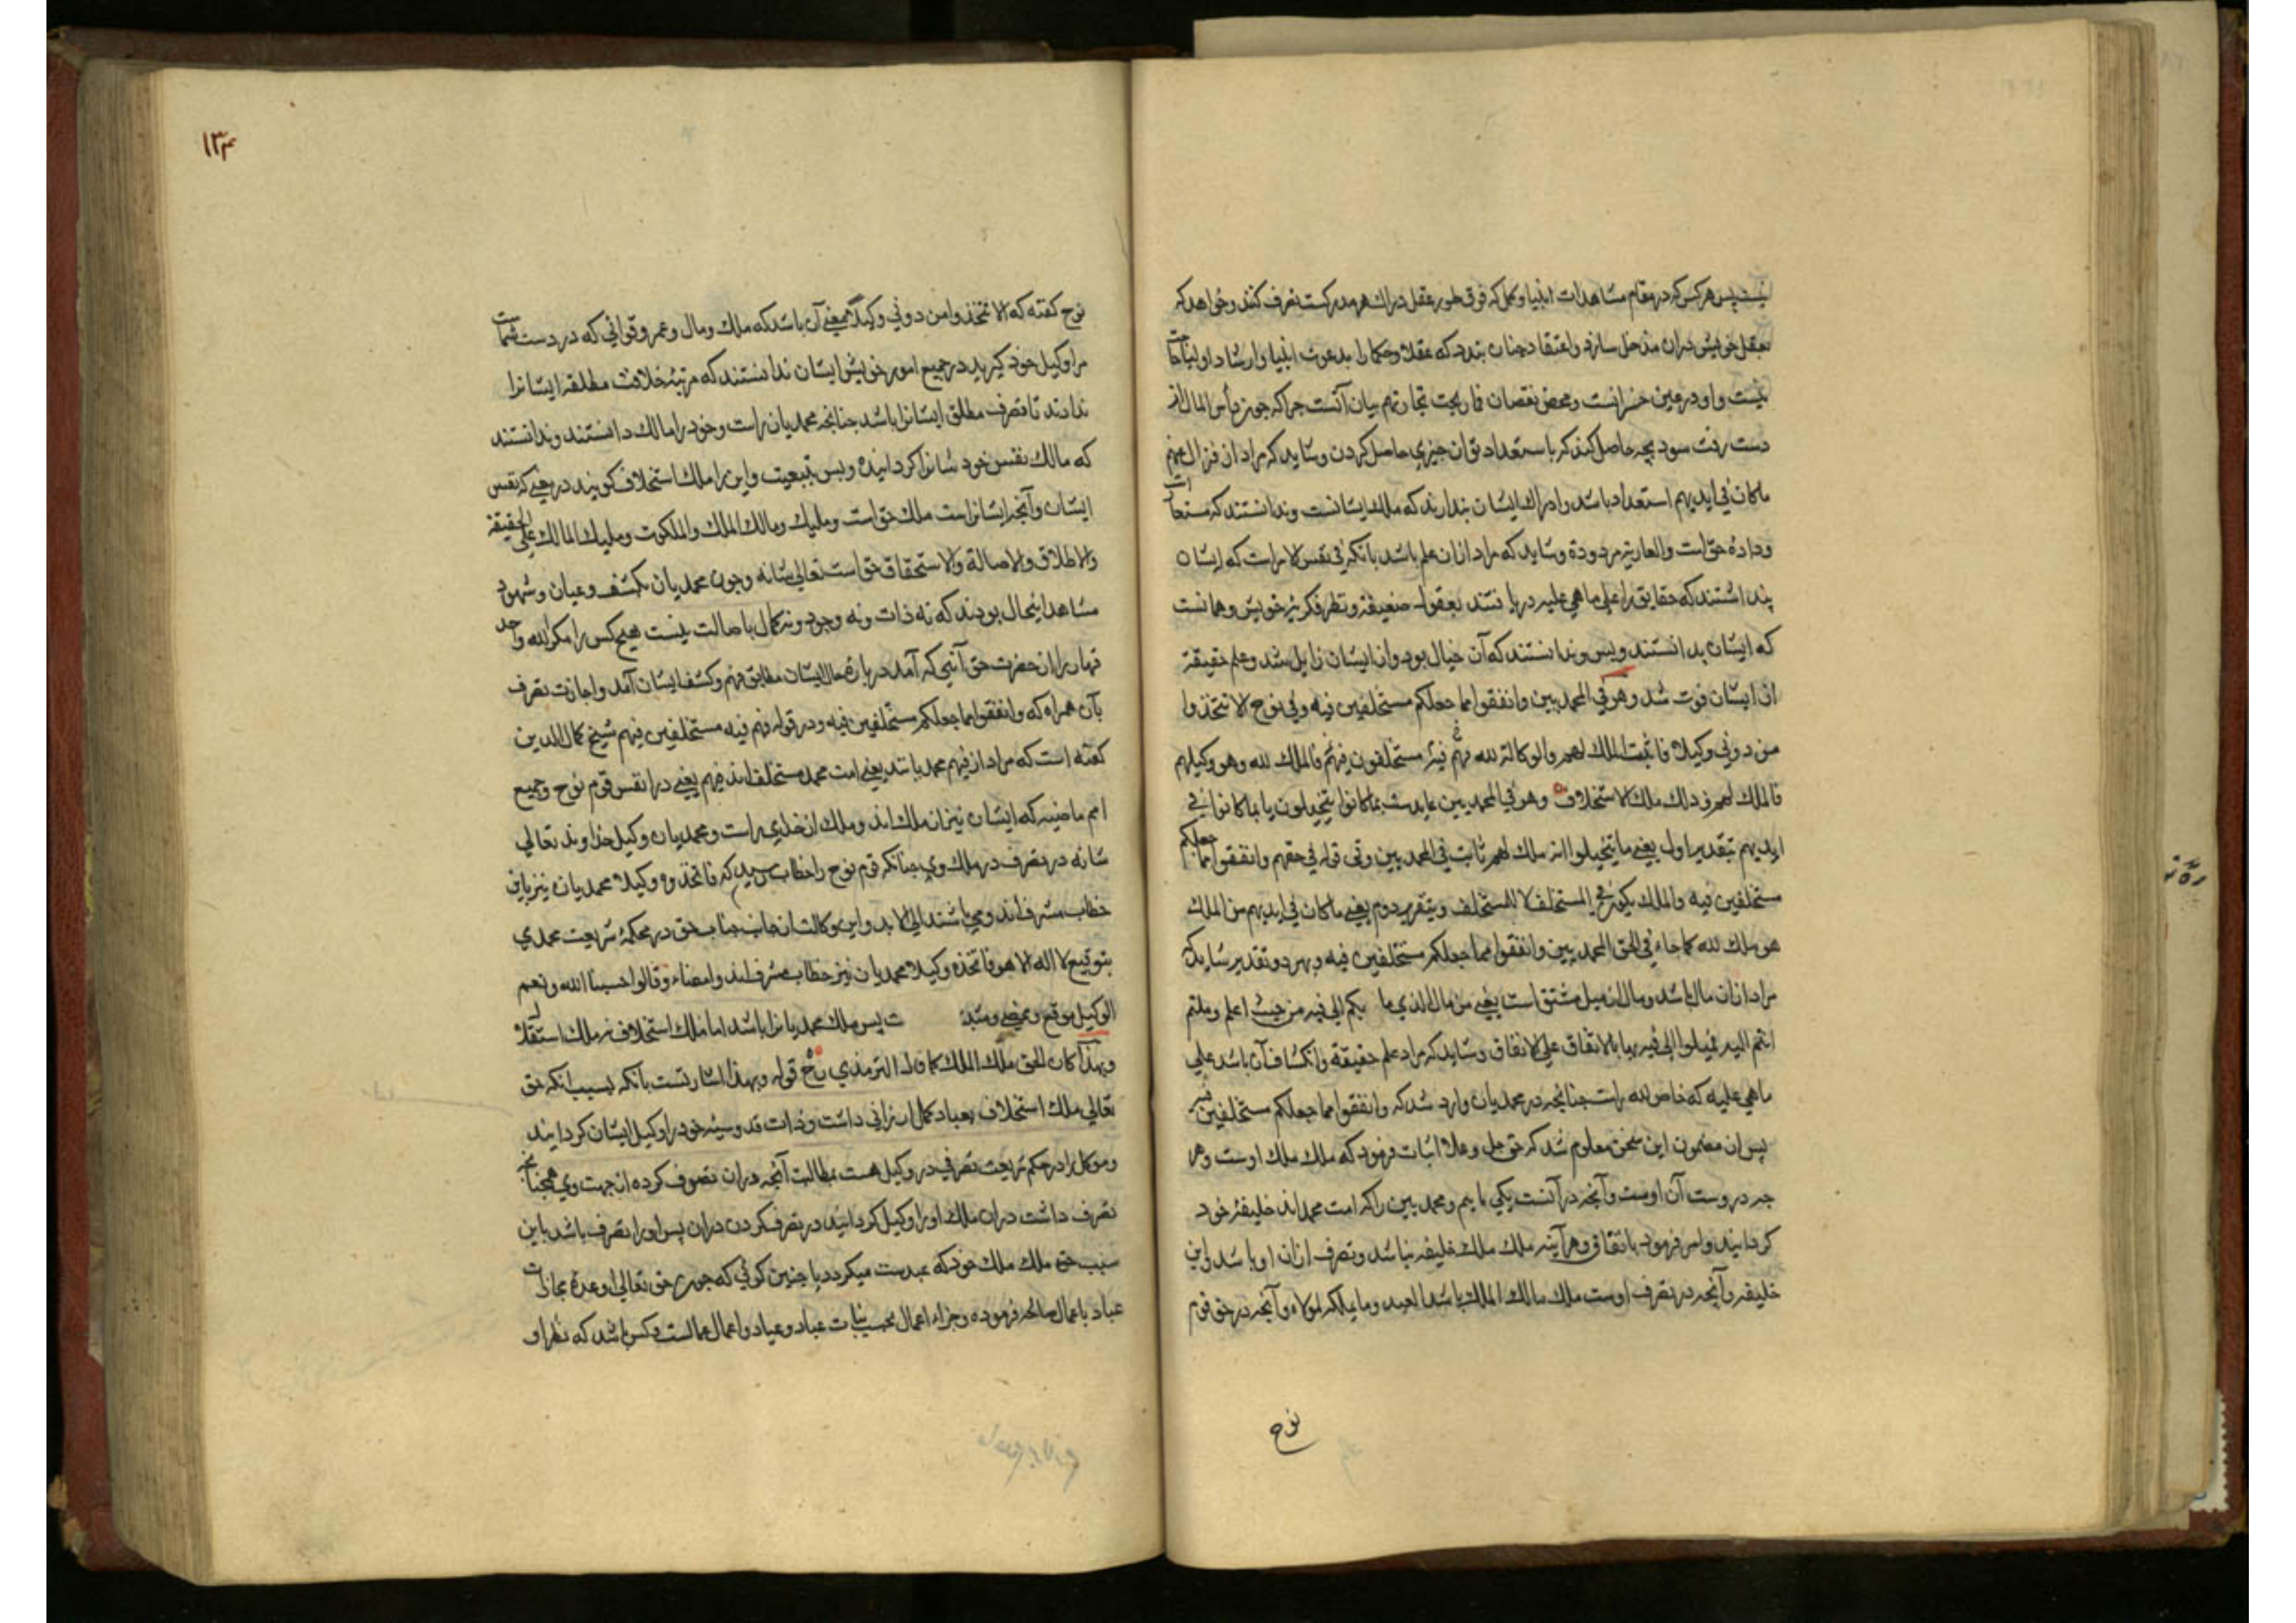 نیست پس هرکس که در مقام مشاهدات انبیا و کمل که فوق طور عقل دراك هر مدركست تصرف کنند و خواهد که
بعقل خویش دران مدخل سازد و اعتقاد چنان بندد که عقلا و حکما را بدعوت انبیا و ارشاد اولیا حاجت
نیست و او در عین خسرانست و محض نقصان فما ربحت تجارتهم بیان آنست چراکه چون راس المال از
دست رفت سود بچه حاصل کند که باستعداد توان چیزي حاصل کردن و شاید که مراد از فزال عنهم
ماکان في ایدیهم استعداد باشد و ادراك ایشان پندارند که ملك ایشانست و ندانستند که مستعار
و دادهٔ حق است والعاریة مردودة و شاید که مراد ازان علم باشد بانکه في نفس الامر است که ایشان
پنداشتند که حقایق را علي ما هي علیه دریافتند بعقول ضعیفه و نظر فکریهٔ خویش و همانست
که ایشان بدانستند و بس و ندانستند که آن خیال بود و از ایشان زایل شد و علم حقیقة
از ایشان فوت شد وهو في المحمدیین وانفقوا مما جعلکم مستخلفین فیه وفي نوح الا تتخذوا
من دوني وکیلا فاثبت الملك لهم والوکالة لله فهم فیه مستخلفون فیهم فالملك لله وهو وکیلهم
فالملك لهم وذلك ملك الاستخلاف وهو في المحمدیین عایدست بما کانوا یتخیلون یا بما کانوا في
ایدیهم بتقدیر اول یعني ما یتخیلوا انه ملك لهم ثابت في المحمدیین وفي قوله في حقهم وانفقوا مما جعلکم
مستخلفین فیه والملك یکون للمستخلف لا المستخلف وبتقریر دوم یعني ما کان في ایدیهم من الملك
هو ملك لله کما جاء في الحق المحمدیین وانفقوا مما جعلکم مستخلفین فیه و بهر دو تقدیر شاید که
مراد ازان مال باشد و مال از میل مشتق است یعني من مال الذي ما بکم الي فیه من حیث اعلم وملتم
انتم الیه یمیلوا الي فیه بها بالانفاق علي الانفاق و شاید که مراد علم حقیقة و انکشاف آن باشد علي
ما هي علیه که خاص الله راست چنانچه در محمدیان وارد شد که وانفقوا مما جعلکم مستخلفین فیه
پس از مضمون این سخن معلوم شد که حق جل وعلا اثبات فرمود که ملك ملك اوست و هر
چه دروست آن اوست و آنچه در آنست یکي ماییم و محمدیین را که امت محمداند خلیفهٔ خود
گردانیند و امر فرمود بانفاق و هرآینه ملك ملك خلیفه نباشد و تصرف ازان او باشد و این
خلیفه و آنچه در تصرف اوست ملك مالك الملك باشد العبد وما یملکه لمولاه و آنچه در حق قوم
نوح
نوح گفته که الا تتخذوا من دوني وکیلا بمعني آن باشد که ملك و مال و عمر و قوائي که در دست شماست
مرا وکیل خود گیرید در جمیع امور خویش ایشان ندانستند که مرتبهٔ خلافت مطلقه ایشانرا
ندادند تا تصرف مطلق ایشانرا باشد چنانچه محمدیان راست و خود را مالك دانستند و ندانستند
که مالك نفس خود شانرا گردانیده و بس بتبعیت و این را ملك استخلاف گویند در معني که نفس
ایشان و آنچه ایشانراست ملك حق است و ملیك و مالك الملك والملکوت و ملیك الممالك علي الحقیقة
والاطلاق والاصالة والاستحقاق حق است تعالي شانه و چون محمدیان بکشف و عیان و شهود
مشاهد اینحال بودند که نه ذات و نه وجود و نه کمال باصالت نیست هیچکس را مگر الله واحد
قهار را از حضرت حق آنچه که آمد در بارهٔ حال ایشان مطابق فهم و کشف ایشان آمد و اجازت تصرف
بآن همراه که وانفقوا مما جعلکم مستخلفین فیه و در قوله فهم فیه مستخلفین فیهم شیخ کمال الدین
گفته است که مراد از فیهم محمد باشد یعني امت محمد مستخلف اند فیهم یعني در انفس قوم نوح و جمیع
امم ماضیه که ایشان نیز از ملك اند و ملك از خداي راست و محمدیان وکیل خداوند تعالي
شانه در تصرف در ملك وي چنانکه قوم نوح را خطاب رسید که فاتخذوه وکیلا محمدیان نیز باین
خطاب مشرف اند و مي باشند الي الابد و این وکالت از جانب جناب حق در محکمهٔ شریعت محمدي
بتوقیع لا اله الا هو فاتخذه وکیلا محمدیان نیز خطاب مشرف اند و امضاء وقالوا حسبنا الله ونعم
الوکیل موقع و ممضي و مثبت پس ملك محمدیانرا باشد اما ملك استخلاف نه ملك استقلال
وبهذا کان الحق ملك الملك کما قال الترمذي رح قوله وبهذا اشارتست بآنکه بسبب انکه حق
تعالي ملك استخلاف بعباد کمل ارزاني داشت و ذات قدوسیهٔ خود را وکیل ایشان گردانید
و موکل را در حکم شریعت تصرفي در وکیل هست بمطالبت آنچه دران تصرف کرده از جهت وي همچنانچه
تصرف داشت دران ملك او را وکیل گردانید در تصرف کردن دران پس او را تصرف باشد باین
سبب حق ملك ملك خود که عبدست میگردد یا چنین گوئي که چون حق تعالي وعدهٔ مجازات
عباد باعمال صالحه فرموده و جزاء اعمال بحسب نیات عباد و عباد و اعمال عمالست و کس باشد که نظر او
۱۳۴